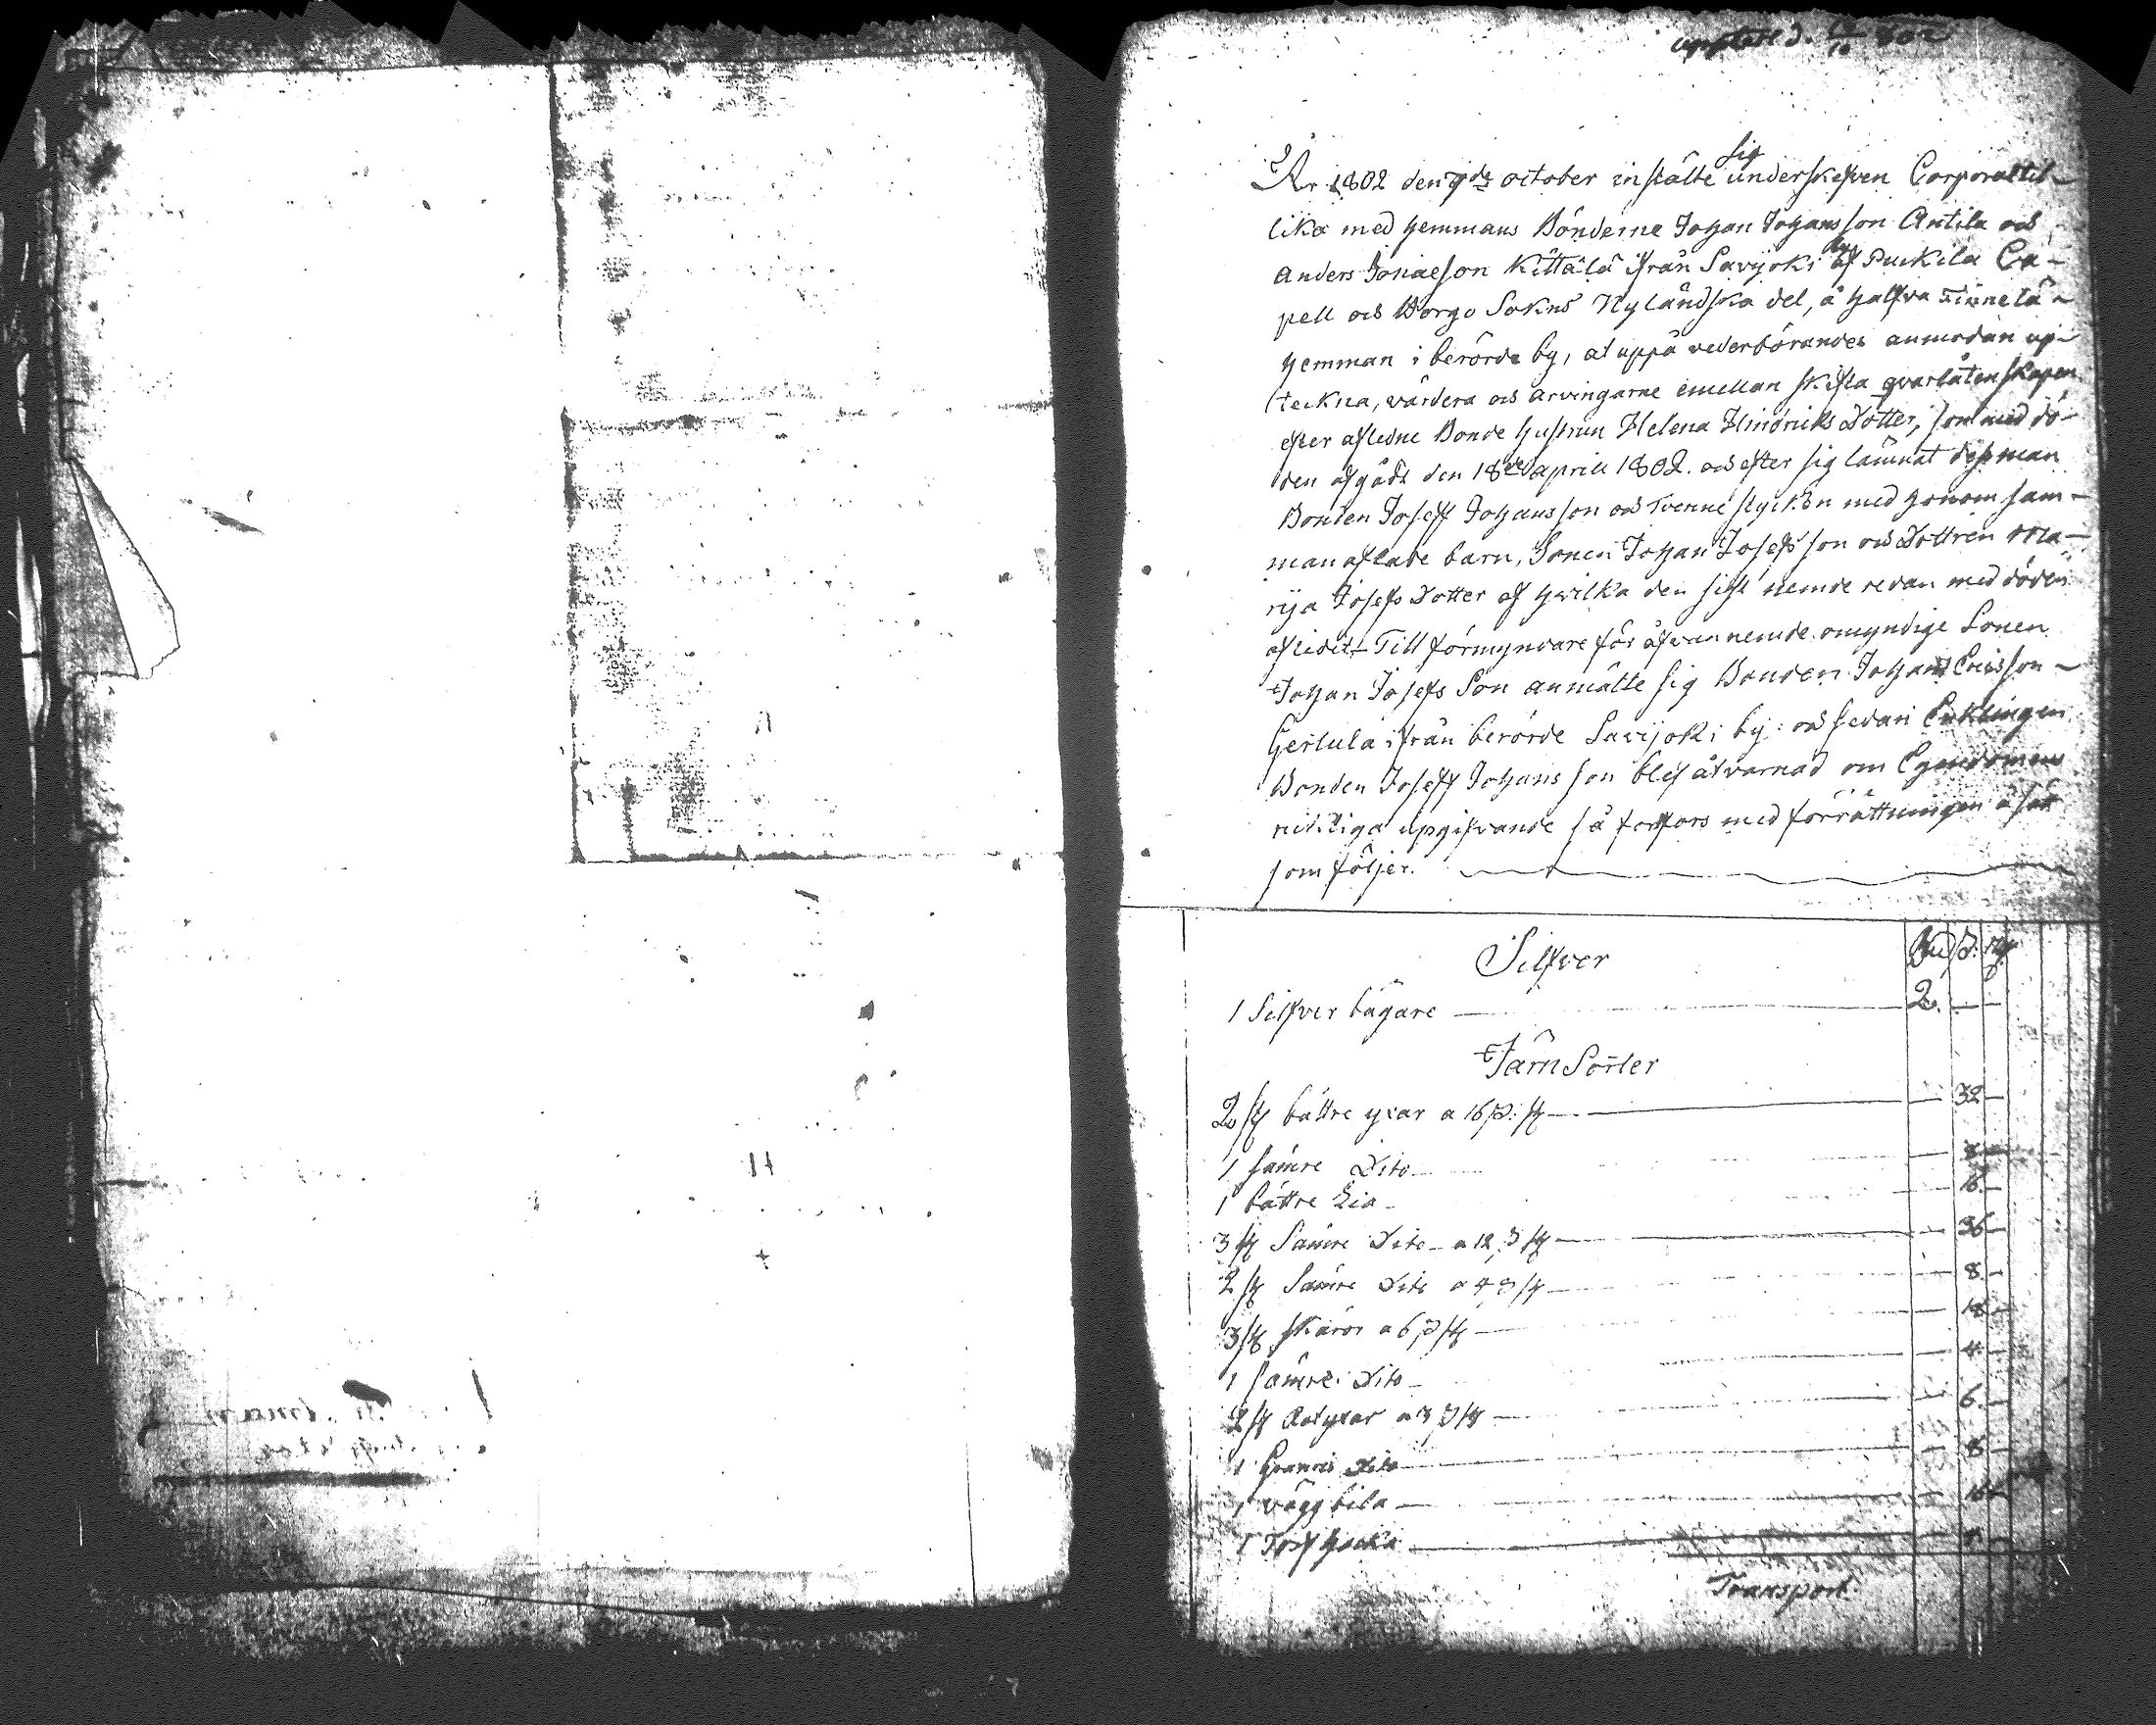 upläst d. 12/10 802
År 1802 den 7de october instälte sig underskefven Corporal til-
lika med hemmans Bönderne Johan Johansson Antila och
Anders Jonaeson Kittälä ifrån Savijoki by af Puckila Ca-
pell och Borgo Sokns Nyländska del, å halfva Finnelä
hemman i berörde by, at uppå vederbörandes anmodan up-
teckna, värdera och arvingarne emellan skifta qvarlåtenskapen
efter afledne Bonde hustrun Helena Hindricks Dotter, som med dö-
den afgådt den 18de aprill 1802. och efter sig lämnat dess man
Bonden Joseff Johansson och Tvenne stycken med honom sam-
man aflade barn, Sonen Johan Josefs son och Dottren Ma-
rija Josefs Dotter af hvilka den sist nemde redan med döden
aflidit. Till förmyndare för åfvannemde omyndige Sonen
Johan Josefs Son anmälte sig Bonden Johan Ericsson
Gerlula ifrån berörde Savijoki by: och sedan Enklingen
Bonden Joseff Johansson blef åtvarnad om Egendomens
ricktiga upgifvande så forfors med förrättningen å sätt
som följer.
Silfver
1 Silfver bägare 2. — —
Järn Sorter
2 st bättre yxar a 16 s: st — 32 —
1 sämre Dito — 8 —
1 bättre Lia — 16 —
3 st Sämre Dito a 12 s st — 36 —
2 st Sämre Dito a 4 s st — 8 —
3 st skäror a 6 s st — 18 —
1 sämre Dito — 4 —
2 st a 3 s st — 6 —
1 Dito — 8 —
1 väggbila — 16
1 Torfhacka
Transport